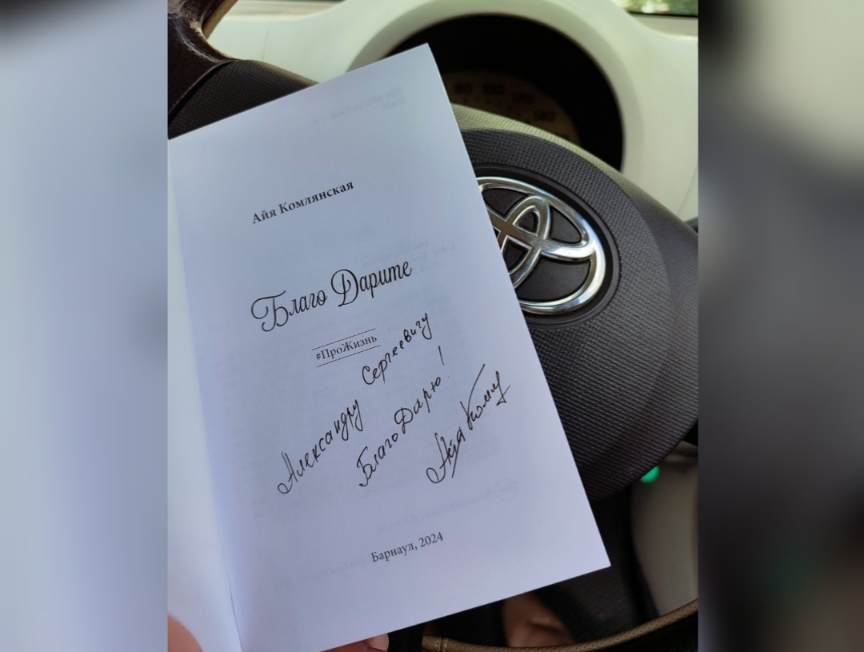 Айя Комлянская
Благо Дарите
#ПроЖизнь
Александру Сергеевичу
БлагоДарю!
Айя Комл
Барнаул, 2024